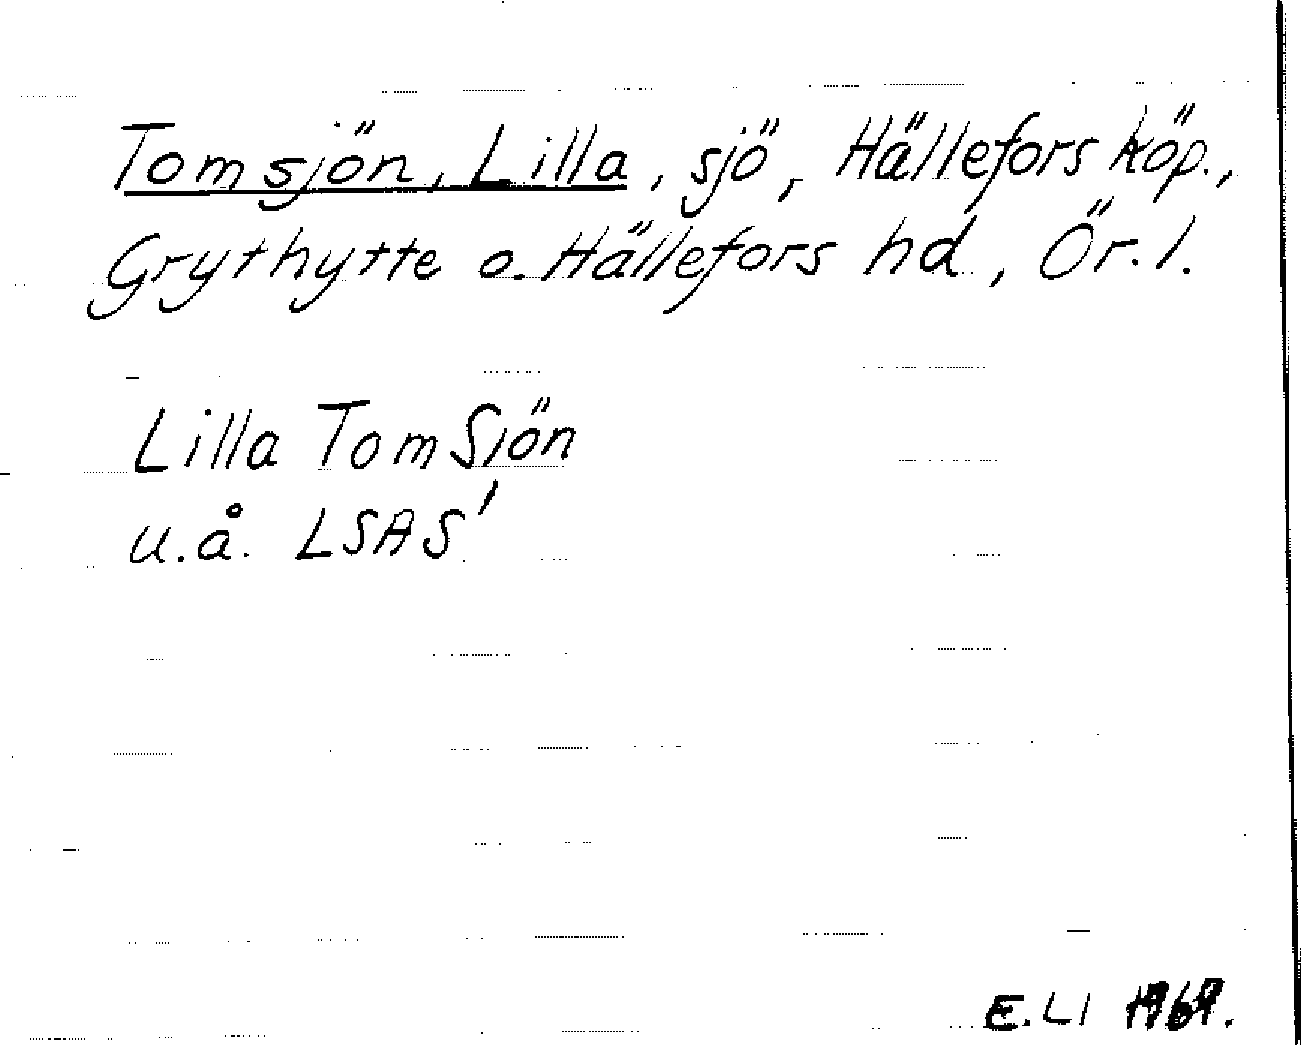 Tomsjön, Lilla, sjö, Hällefors köp.,
Grythytte o. Hällefors hd, Ör. l.
Lilla Tom Sjön
u.å. LSAS'
E.LI 1969.